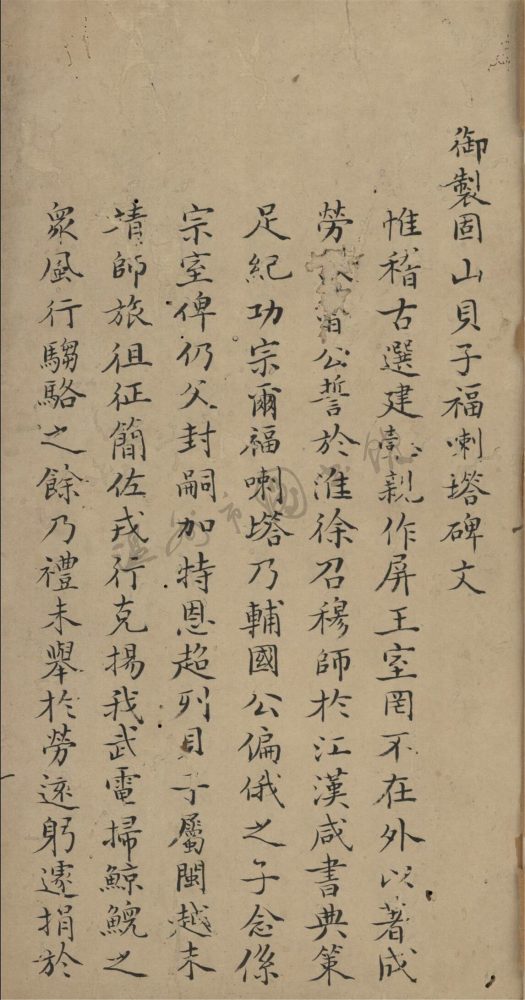 御製固山貝子福喇塔碑文
惟稽古選建懿親作屏王室罔不在外以著成
勞公誓於淮徐召穆師於江漢咸書典策
足紀功宗爾福喇塔乃輔國公偏俄之子念係
宗室俾仍父封嗣加特恩超列貝子屬閩越未
靖師旅徂征簡佐戎行克揚我武電掃鯨鯢之
眾風行騶駱之餘乃禮未舉於勞還躬遽捐於